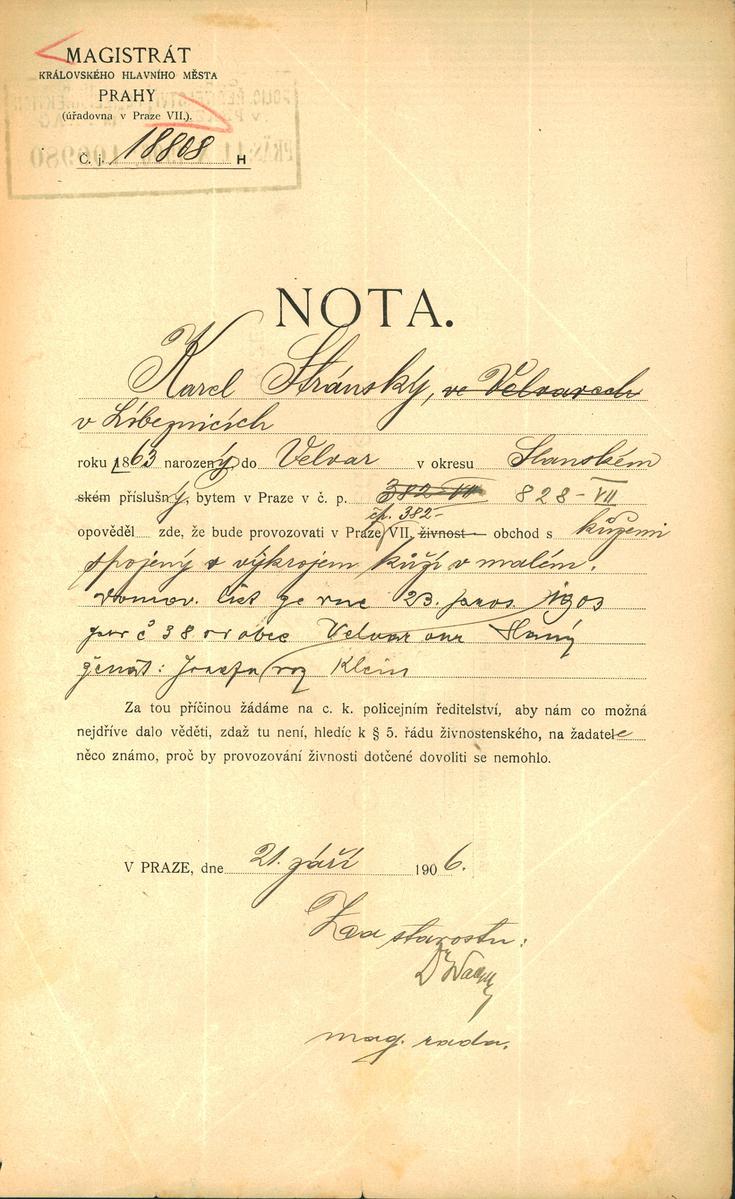 MAGISTRÁT
KRÁLOVSKÉHO HLAVNÍHO MĚSTA
PRAHY
(úřadovna v Praze VII.).
Č. j. 18808 H
NOTA.
Karel Stránský, ve Velvarech
v Líbeznicích
roku 1863 narozený do Velvar v okresu Slanském
ském příslušný, bytem v Praze v č. p. 382-VII 828-VII
čp. 382-
opověděl zde, že bude provozovati v Praze VII. živnost obchod s kůžemi
spojený s výkrojem kůží v malém.
domov. list 23. pros. 1903
č 38 obec Velvar Slaný
ženat: Josefa roz Klein
Za tou příčinou žádáme na c. k. policejním ředitelství, aby nám co možná
nejdříve dalo věděti, zdaž tu není, hledíc k § 5. řádu živnostenského, na žadatele
něco známo, proč by provozování živnosti dotčené dovoliti se nemohlo.
V PRAZE, dne 21. září 1906.
Za starostu:
Dr
mag. rada.